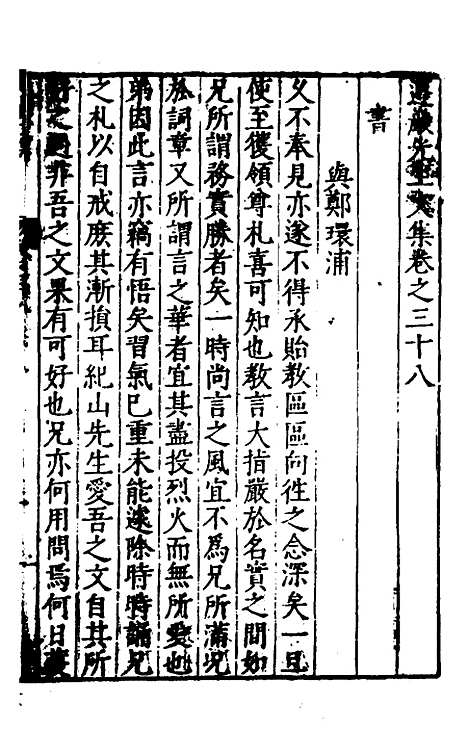 遵巖先生文集卷之三十八
書
與鄭環浦
久不奉見亦遂不得承貽教區區向徃之念深矣一旦
使至獲領尊札喜可知也教言大指嚴於名實之間如
兄所謂務實勝者矣一時尚言之風宜不爲兄所滿况
於詞章又所謂言之華者宜其盡投烈火而無所愛也
弟因此言亦竊有悟矣習氣已重未能遽除時時誦兄
之札以自戒庶其漸損耳紀山先生愛吾之文自其所
好之過非吾之文果有可好也兄亦何用問焉何日